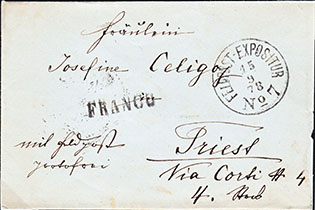 Fräulein
Josefine Celigoj
FRANCO
FELDPOST-EXPOSITUR
15
9
78
No 7
mit Feldpost
portofrei
Triest
Via Corti # 4
4. Stock